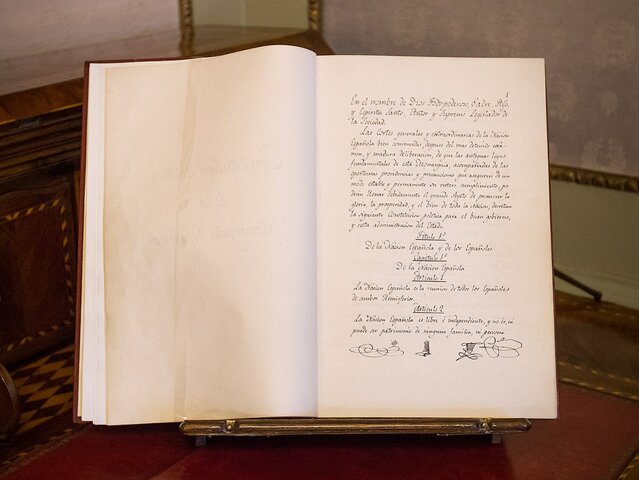 1
En el nombre de Dios Todopoderoso, Padre, Hijo,
y Espíritu Santo, Autor y Supremo Legislador de
la Sociedad.
Las Cortes generales y extraordinarias de la Nacion
Española bien convencidas, despues del mas detenido exa-
men, y madura deliberacion, de que las antiguas leyes
fundamentales de esta Monarquia, acompañadas de las
oportunas providencias y precauciones que aseguren de un
modo estable y permanente su entero cumplimiento, po-
dran llenar debidamente el grande objeto de promover la
gloria, la prosperidad, y el bien de toda la Nacion, decretan
la siguiente Constitucion politica para el buen gobierno,
y recta administracion del Estado.
Titulo 1º
De la Nacion Española y de los Españoles.
Capitulo 1º
De la Nacion Española.
Articulo 1.
La Nacion Española es la reunion de todos los Españoles
de ambos Hemisferios.
Articulo 2.
La Nacion Española es libre é independiente, y no es, ni
puede ser patrimonio de ninguna familia, ni persona.